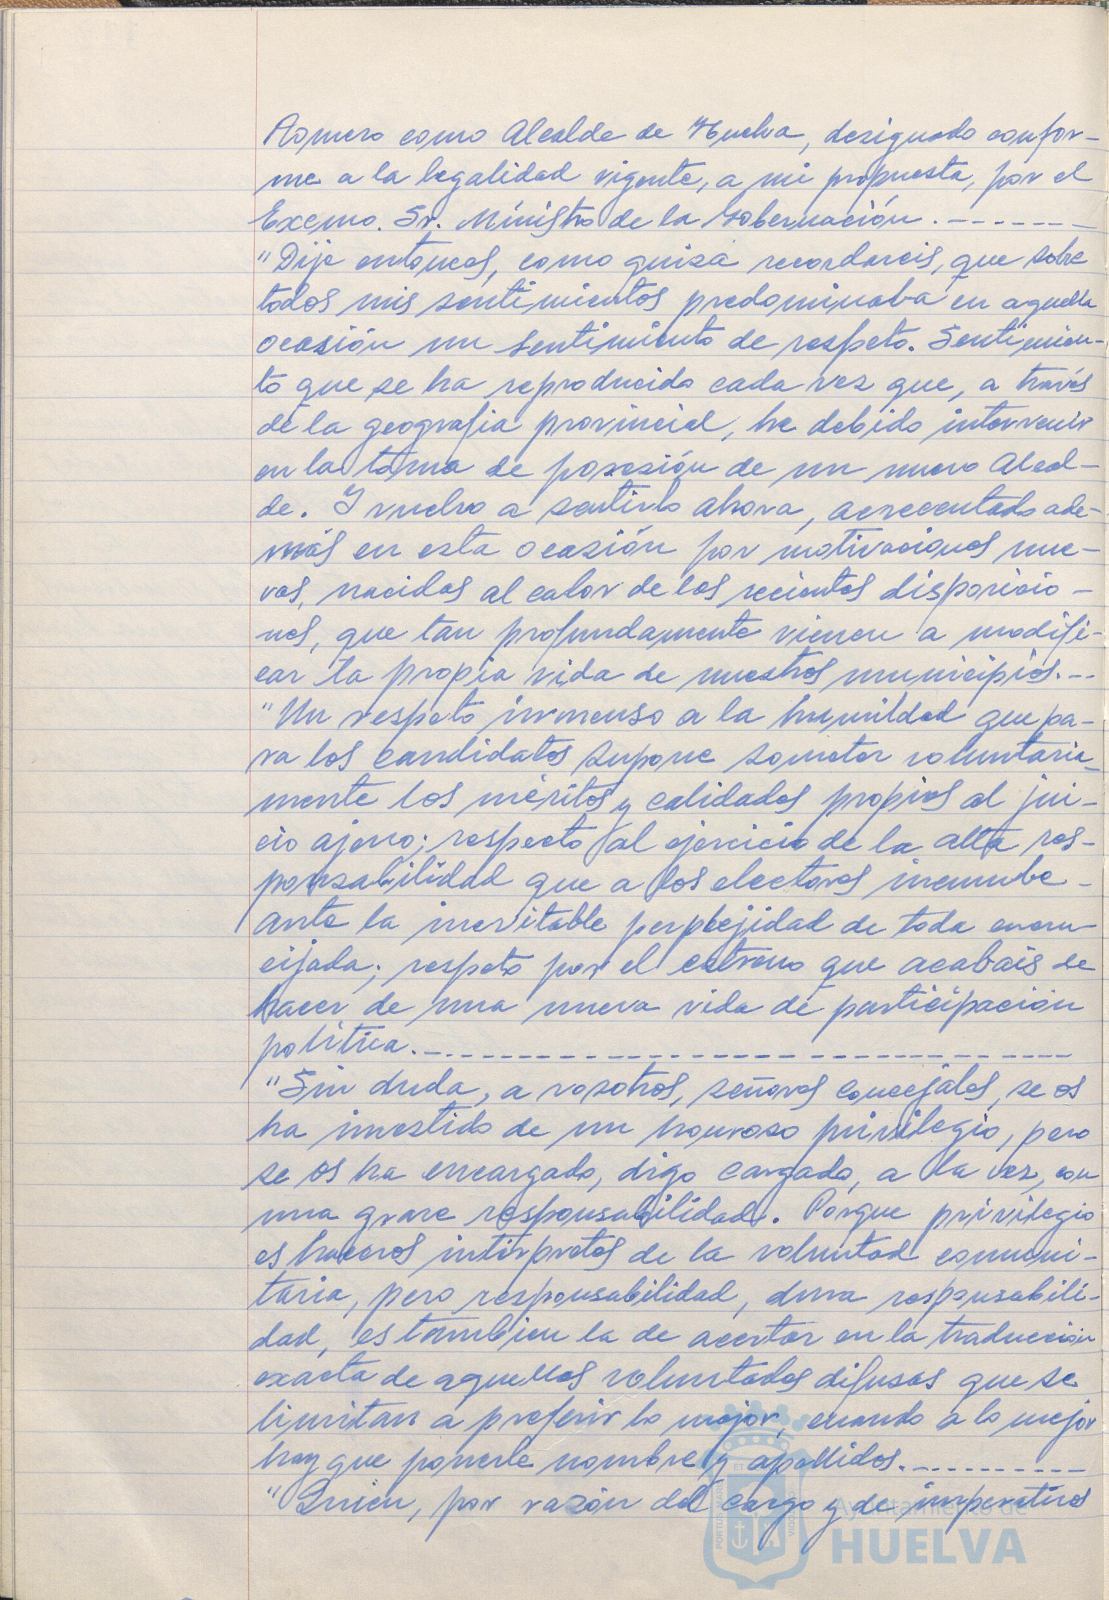 Romero como Alcalde de Huelva, designado confor-
me a la legalidad vigente, a mi propuesta, por el
Excmo. Sr. Ministro de la Gobernación.-------
"Dije entonces, como quizá recordareis, que sobre
todos mis sentimientos predominaba en aquella
ocasión un sentimiento de respeto. Sentimien-
to que se ha reproducido cada vez que, a través
de la geografia provincial, he debido intervenir
en la toma de posesión de un nuevo Alcal-
de. Y vuelvo a sentirlo ahora, acrecentado ade-
más en esta ocasión por motivaciones nue-
vas, nacidas al calor de las recientes disposicio-
nes, que tan profundamente vienen a modifi-
car la propia vida de nuestros municipios.--
"Un respeto inmenso a la humildad que pa-
ra los candidatos supone someter voluntaria-
mente los méritos y calidades propios al jui-
cio ajeno; respeto al ejercicio de la alta res-
ponsabilidad que a los electores incumbe-
ante la inevitable perplejidad de toda encru
cijada; respeto por el estreno que acabais de
hacer de una nueva vida de participación
politica.-----------------------------
"Sin duda, a vosotros, señores concejales, se os
ha investido de un honroso privilegio, pero
se os ha encargado, digo cargado, a la vez, con
una grave responsabilidad. Porque privilegio
es haceros intérpretes de la voluntad comuni-
taria, pero responsabilidad, dura responsabili-
dad, es tambien la de acertar en la traducción
exacta de aquellas voluntades difusas que se
limitan a preferir lo mejor, cuando a lo mejor
hay que ponerle nombre y apellidos.----------
"Quien, por razón del cargo y de imperativos
Ayuntamiento de
HUELVA